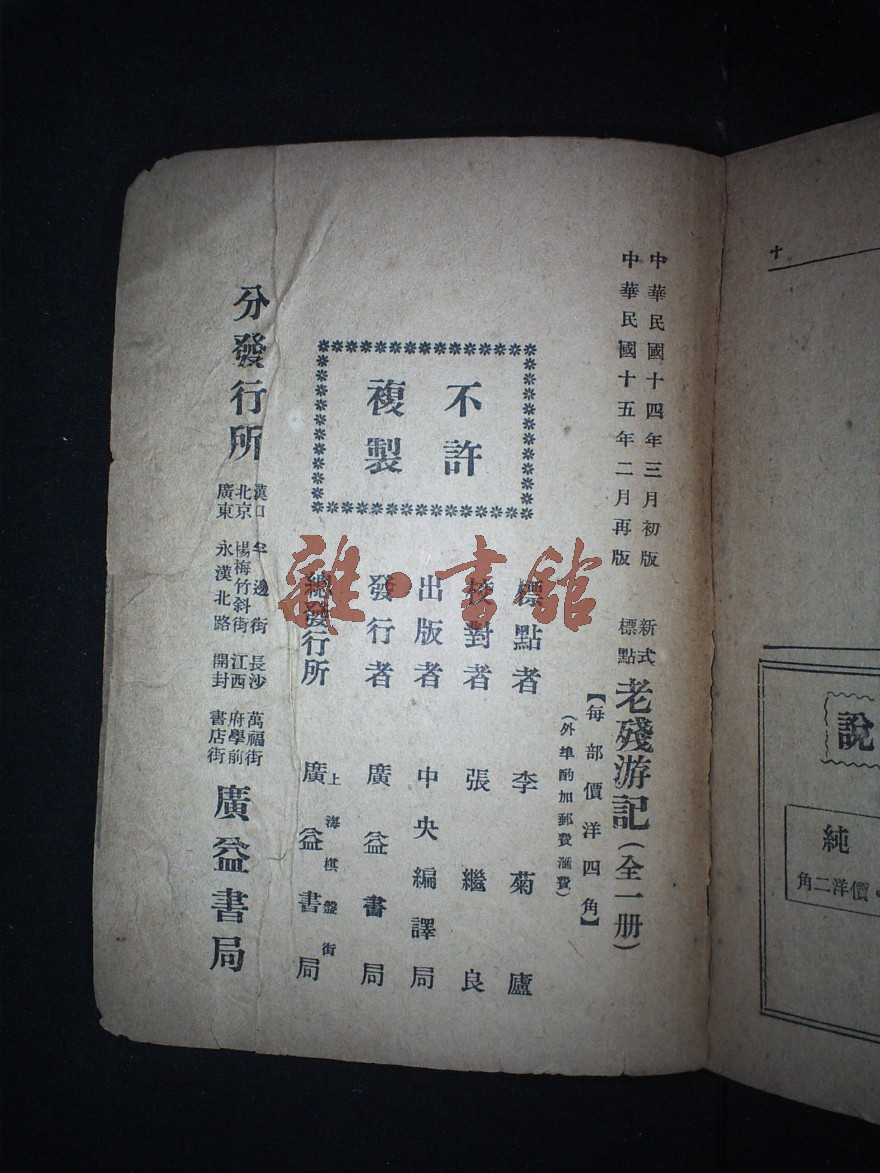 中華民國十四年三月初版
中華民國十五年二月再版
新式標點 老殘游記（全一册）
【每部價洋四角】
（外埠酌加郵費滙費）
標點者 李菊廬
校對者 張繼良
出版者 中央編譯局
發行者 廣益書局
總發行所 上海棋盤街 廣益書局
不許
複製
分發行所
漢口 半邊街 長沙 萬福街
北京 楊梅竹斜街 江西 府學前
廣東 永漢北路 開封 書店街
廣益書局
雜·書館
十
說
純
價洋二角